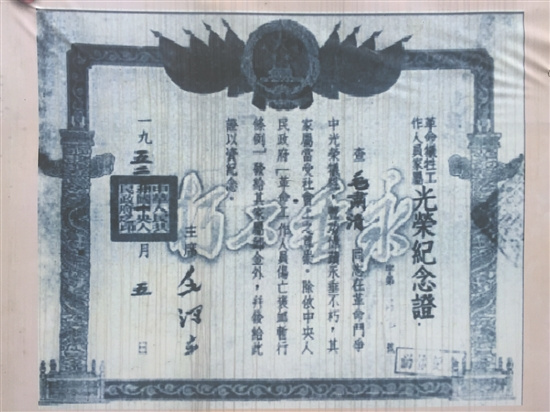 革命犧牲工
作人員家屬
光榮紀念證
字第 號
查毛 清同志在革命鬥爭
中光榮犧牲,豐功偉績永垂不朽,其
家屬當受社會上之尊崇。除依中央人
民政府「革命工作人員傷亡褒卹暫行
條例」發給其家屬卹金外,幷發給此
證以資紀念。
主席 毛澤東
一九五二 月五日
中華人民共
和國中央人
民政府之印
永垂不朽